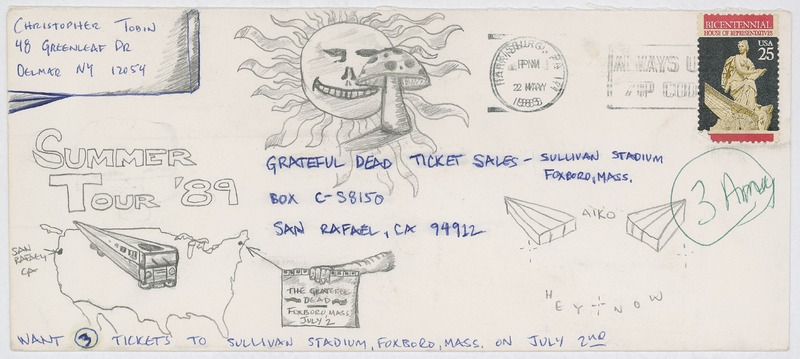 CHRISTOPHER TOBIN
48 GREENLEAF DR
DELMAR NY 12054
HARRISBURG, PA 171
PM
22 MAY
ALWAYS U
ZIP COD
BICENTENNIAL
HOUSE OF REPRESENTATIVES
USA
25
SUMMER
TOUR '89
GRATEFUL DEAD TICKET SALES - SULLIVAN STADIUM
FOXBORO, MASS.
BOX C-S8150
SAN RAFAEL, CA 94912
3
AIKO
HEY NOW
SAN
RAFAEL
CA
THE GRATEFUL
DEAD
FOXBORO, MASS
JULY 2
WANT 3 TICKETS TO SULLIVAN STADIUM, FOXBORO, MASS. ON JULY 2ND